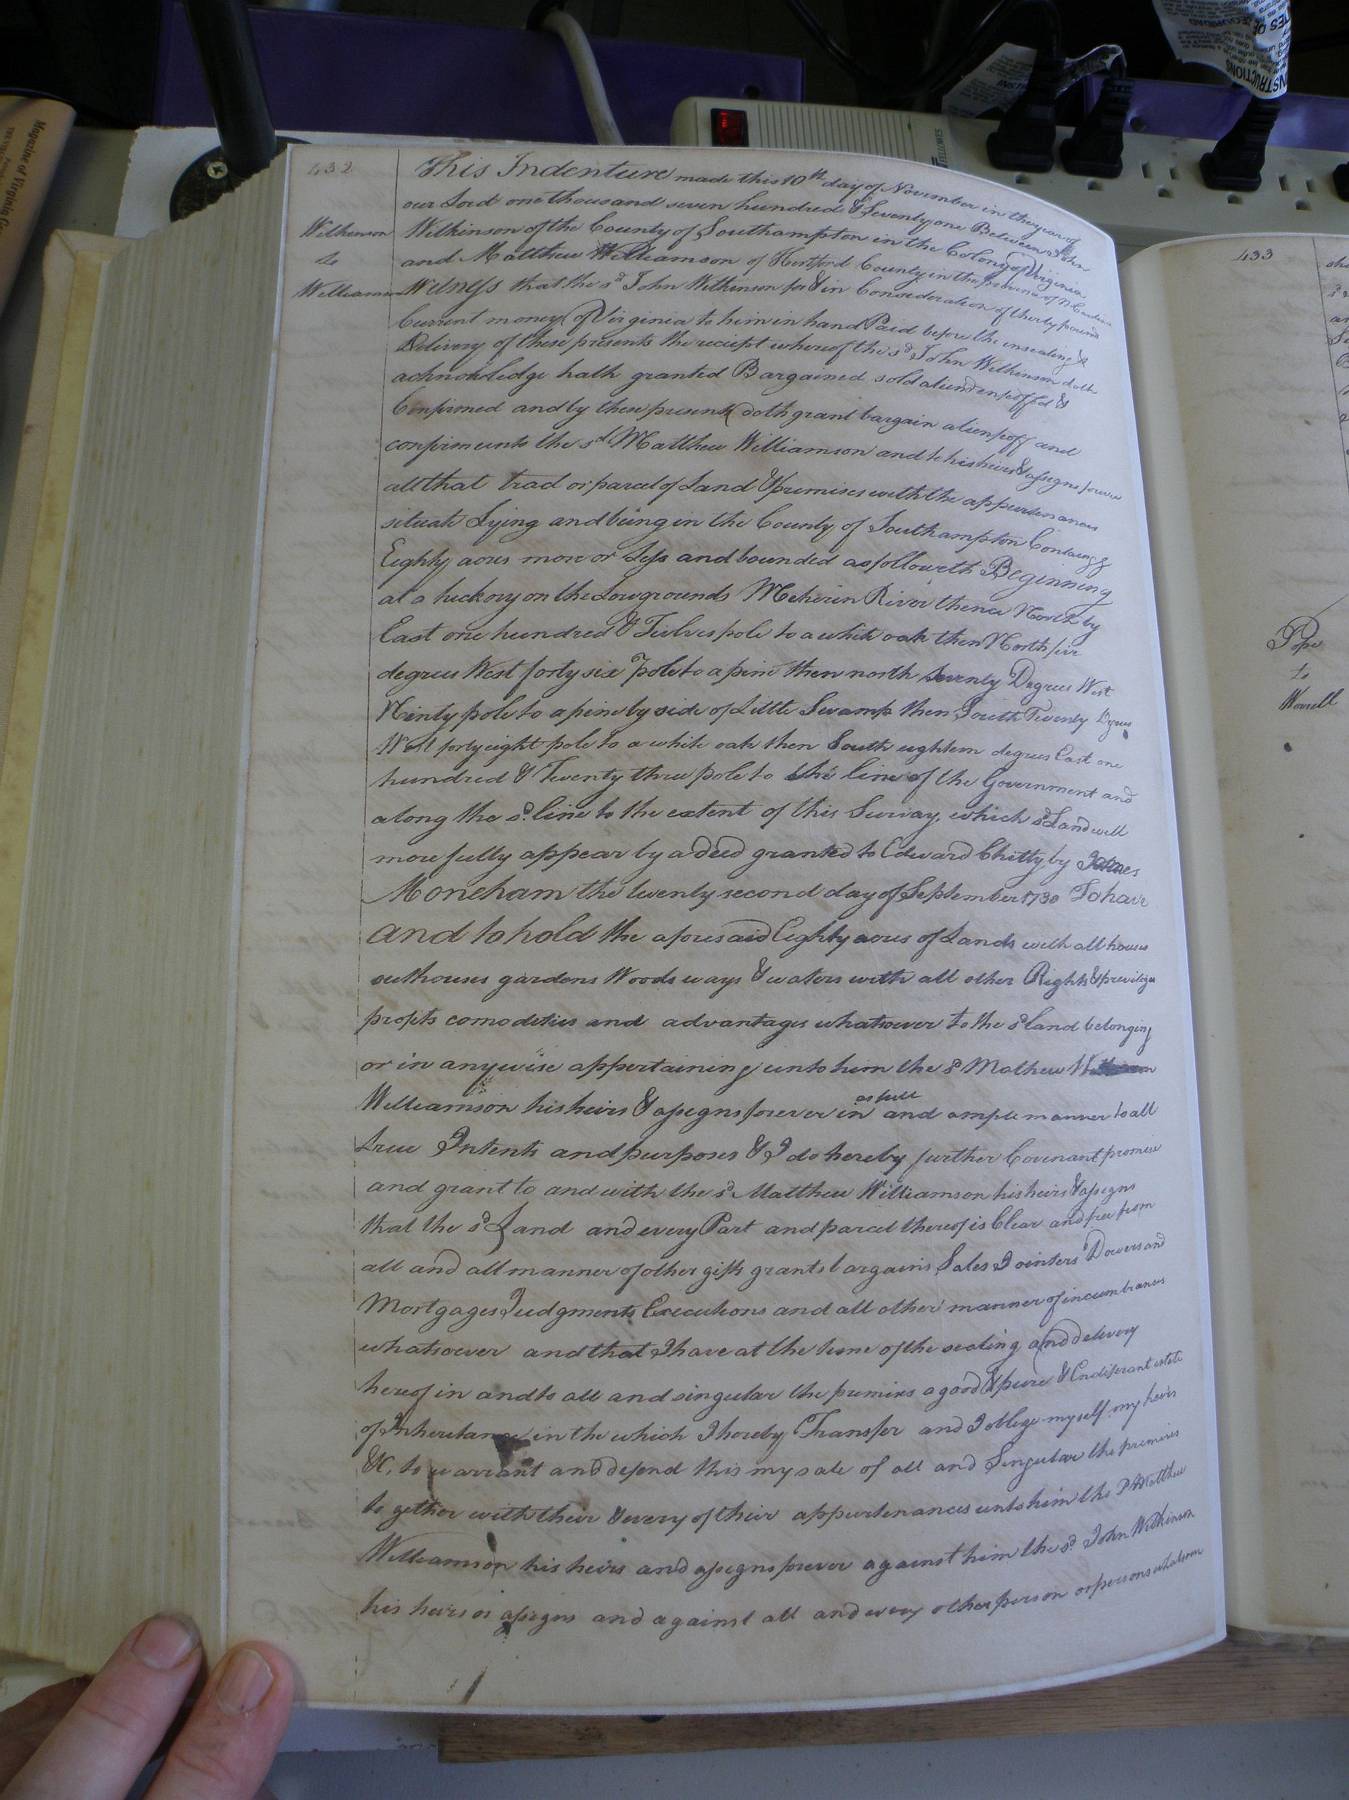 432
Wilkinson
to
Williamson
This Indenture made this 10th day of November in the year of
our Lord one thousand seven hundred & Seventy one Between John
Wilkinson of the County of Southampton in the Colony of Virginia
and Matthew Williamson of Hertford County in the province of N Carolina
Witness that the sd John Wilkinson for & in Consideration of thirty pounds
Current money of Virginia to him in hand Paid before the ensealing &
Delivery of these presents the receipt whereof the sd John Wilkinson doth
acknowledge hath granted Bargained sold aliend enfeoffed &
Confirmed and by these presents doth grant bargain alien feoff and
confirm unto the sd Matthew Williamson and to his heirs & assigns forever
all that tract or parcel of Land & premises with the appurtenances
situate Lying and being in the County of Southampton Containg
Eighty acres more or Less and bounded as followeth Beginning
at a hickory on the Lowgrounds Meherin River thence North by
East one hundred & Twelve pole to a white oak then North five
degrees West forty six pole to a pine then north seventy Degrees West
Ninty pole to a pine by side of Little Swamp then South Twenty Dgrees
West forty eight pole to a white oak then South eighteen degrees East one
hundred & Twenty three pole to the line of the Government and
along the sd line to the extent of this Survay, which sd Land will
more fully appear by a deed granted to Edward Chitty by James
Moneham the twenty second day of September 1730 To have
and to hold the aforesaid Eighty acres of Lands with all houses
outhouses gardens Woods ways & waters with all other Rights & previliges
profits comodities and advantages whatsoever to the sd land belonging
or in anywise appertaining unto him the sd Mathew
Williamson his heirs & assigns forever in as full and ample manner to all
true Intents and purposes & I do hereby further Covenant promise
and grant to and with the sd Matthew Williamson his heirs & assigns
that the sd Land and every Part and parcel thereof is Clear and free from
all and all manner of other gifts grants bargains Sales Jointers Dowers and
Mortgages Judgments Executions and all other manner of incumbrances
whatsoever and that I have at the time of the sealing and delivery
hereof in and to all and singular the premises a good & pure & Endiferant estate
of Inheritance in the which I hereby Transfer and I oblige myself my heirs
&C. to warrant and defend this my sale of all and Singular the premises
to gether with their & every of their appurtenances unto him the sd Matthew
Williamson his heirs and assigns forever against him the sd John Wilkinson
his heirs or assigns and against all and every other person or persons whatsoever
433
Pope
to
Worrell
Magazine of Virginia
FELLOWES
INSTRUCTIONS